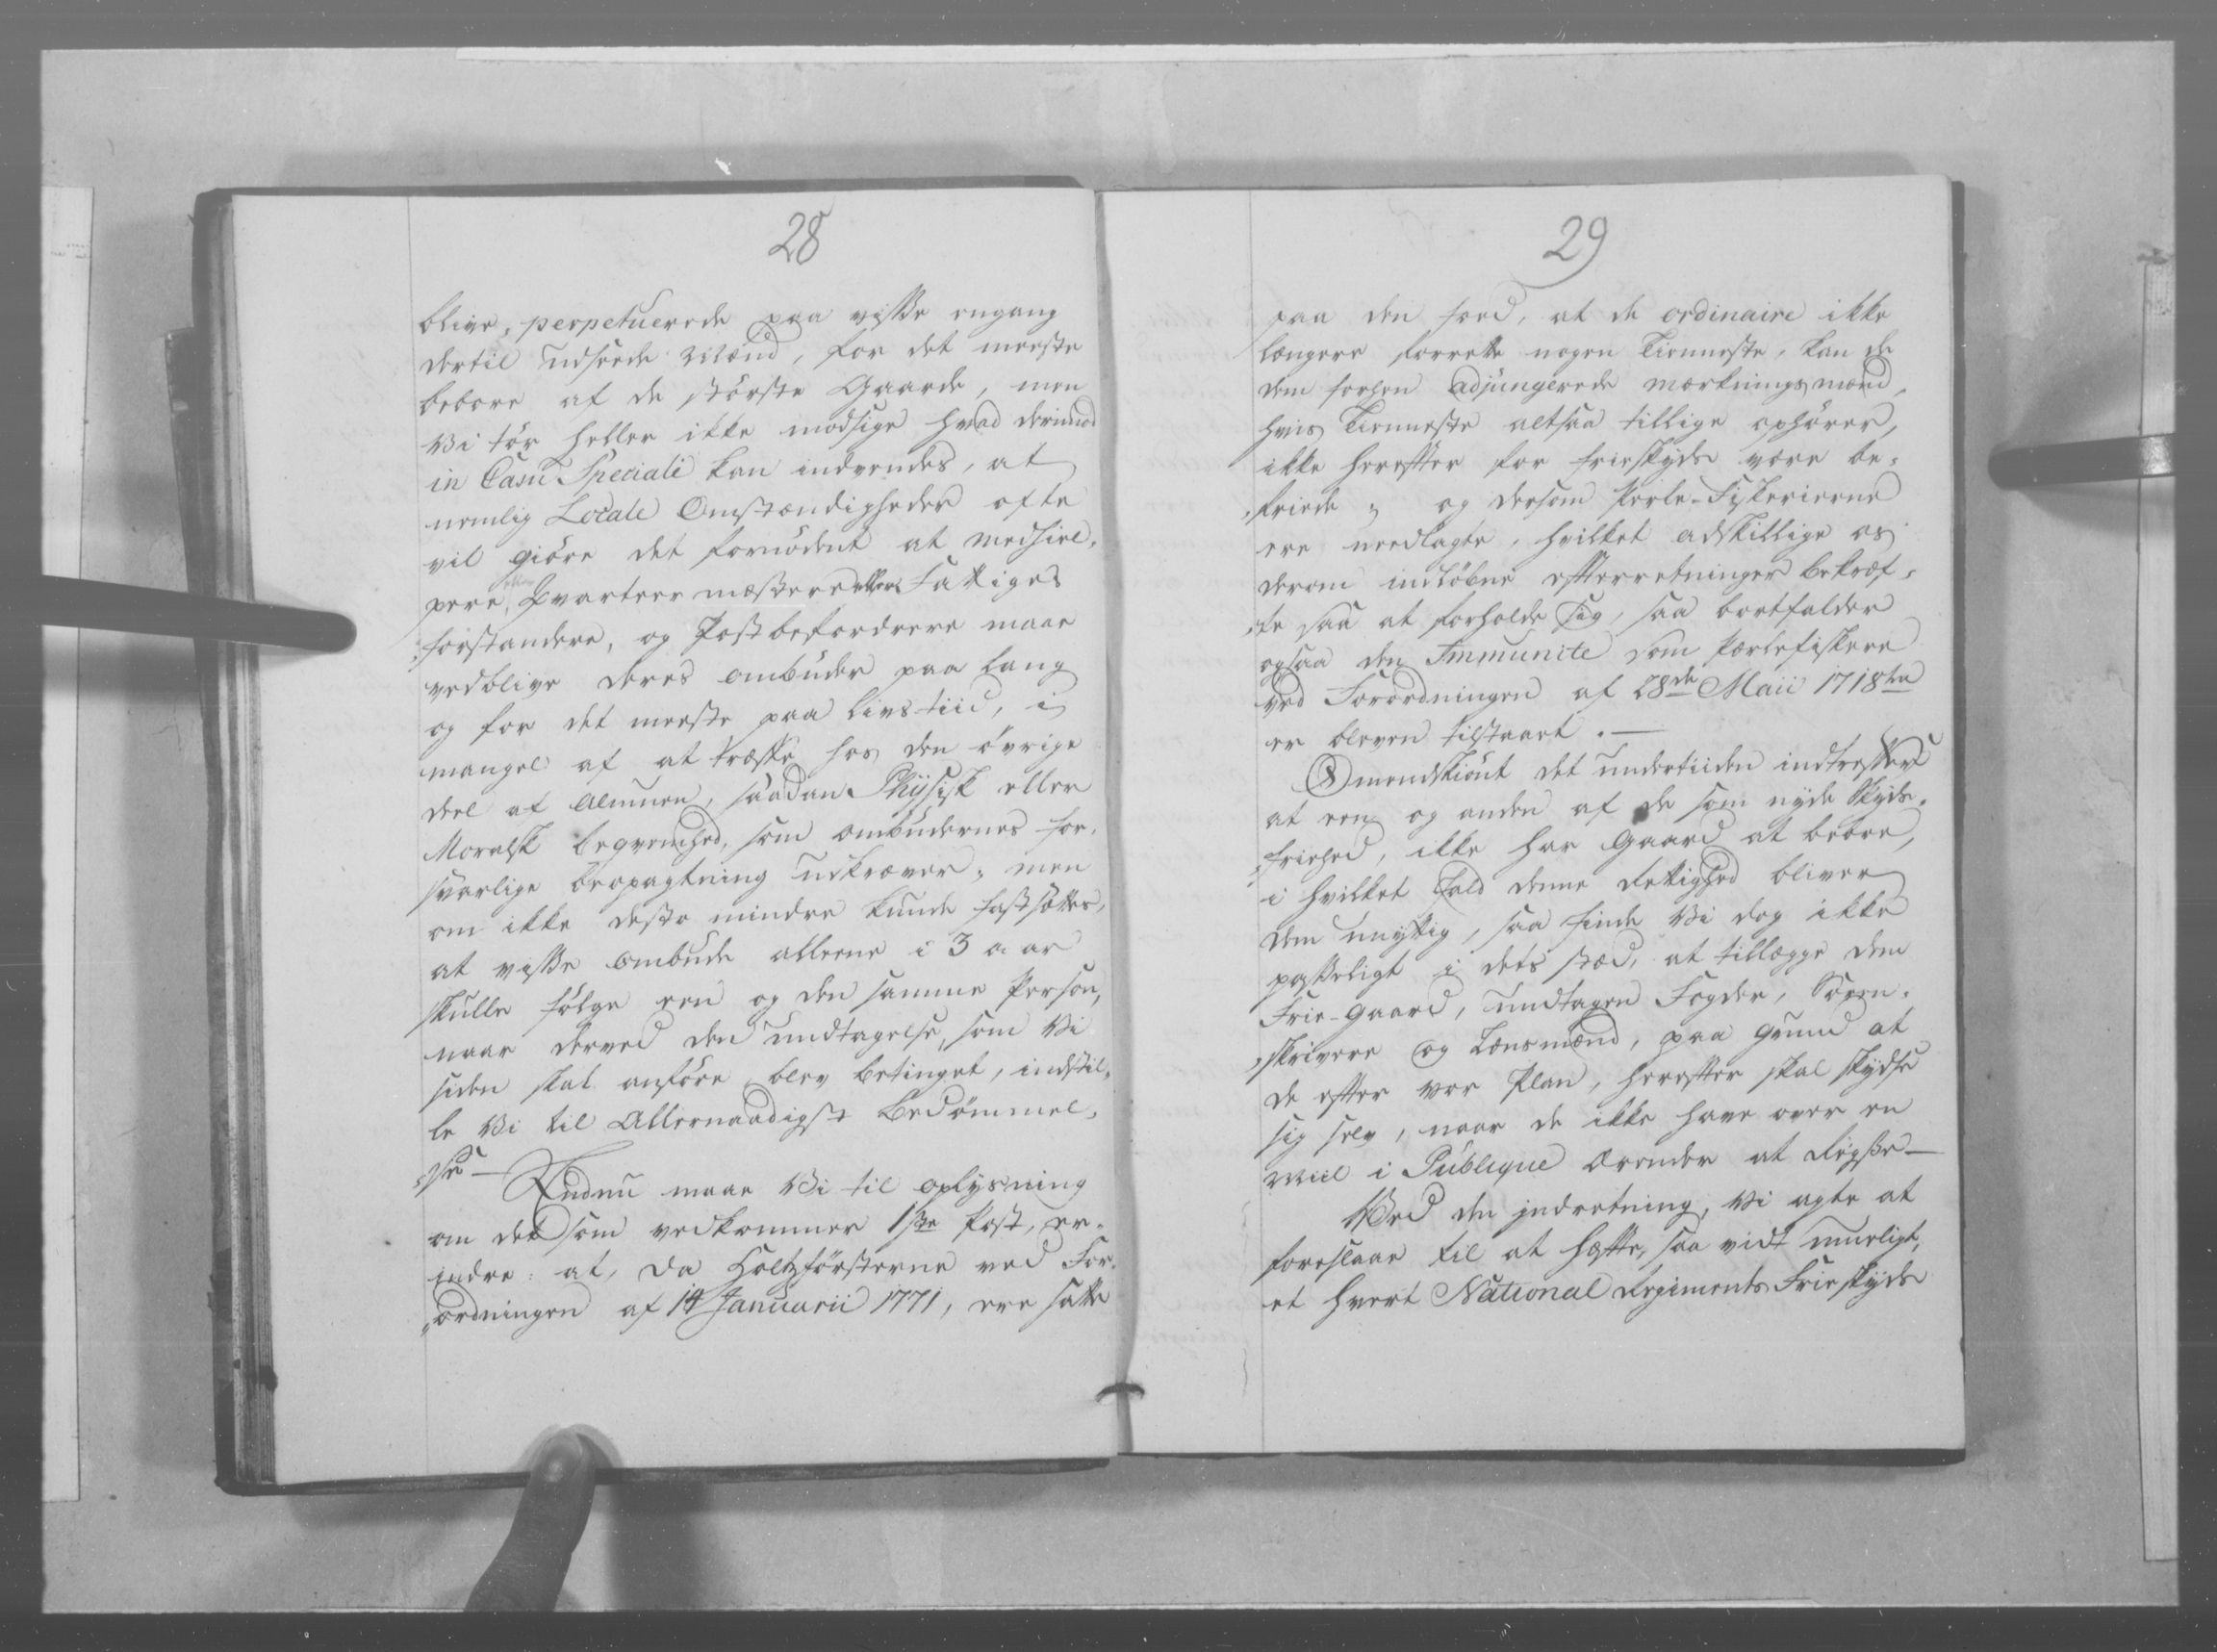 28
blive, perpetuerede paa visse engang
dertil udseede Mænd, for det meeste
beboere af de störste Gaarde, men
Vi tör heller ikke modsige hvad derimod
in Casu Speciali kan indvendes, at
nemlig Locale Omstændigheder ofte
vil giöre det fornödent at medhiel-
pere, Qvarteermæstere eller Fattiges
forstandere, og Postbefordrere maae
vedblive deres ombuder paa lang
og for det meeste paa livs tiid, i
mangel af at træffe hos den övrige
deel af Almuen, saadan Physisk eller
Moralsk beqvemhed, som ombudernes for-
svarlige beopagtning udkræver; men
om ikke desto mindre kunde fastsættes,
at visse ombude alleene i 3 aar
skulle fölge een og den samme Person,
naar derved den undtagelse, som Vi
siden skal anföre blev betinget, indstil-
le Vi til Allernaadigst Bedömmel-
se —
Endnu maae Vi til oplysning
om det som vedkommer 1ste Post, er-
indre: at, da Holtzförsterne ved For-
ordningen af 14 Januarii 1771, ere satte
29
paa den foed, at de ordinaire ikke
længere forrette nogen Tienneste, kan de
dem forhen adjungerede mærknings mænd,
hvis Tienneste altsaa tillige ophörer,
ikke herefter for frieskyds være be-
friede; og dersom Perle-Fiskerierne
ere needlagte, hvilket adskillige os
derom indlöbne efterretninger bekræf-
te saa at forholde sig, saa bortfalder
ogsaa den Immunite som Perlefiskere
ved Forordningen af 28de Maii 1718ten
er bleven tilstaaet. —
Omendskiönt det undertiiden indtreffer
at een og anden af de som nyde Skyds-
friehed, ikke har Gaard at beboe,
i hvilket fald denne Rettighed bliver
dem unyttig, saa finde Vi dog ikke
passeligt i dets sted, at tillægge dem
Frie-Gaard, undtagen Fogder, Soren-
skrivere og Lænsmænd, paa grund at
de efter vor Plan, herefter skal skydse
sig selv, naar de ikke have over en
Miil i Publique Ærender at Reyse —
Ved den indretning, Vi agte at
foreslaae til at hæfte, saa vidt mueligt,
et hvert National Regiments Frieskyds